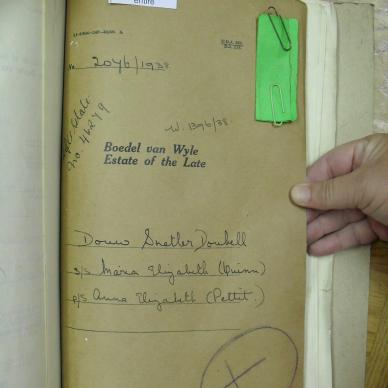 entire
No. 2046/1938
No. 46279
W. 1396/38.
Boedel van Wyle
Estate of the Late
Douw Snatler Doubell
s/s Maria Elizabeth (Quinn)
p/s Anna Elizabeth (Pettit.)